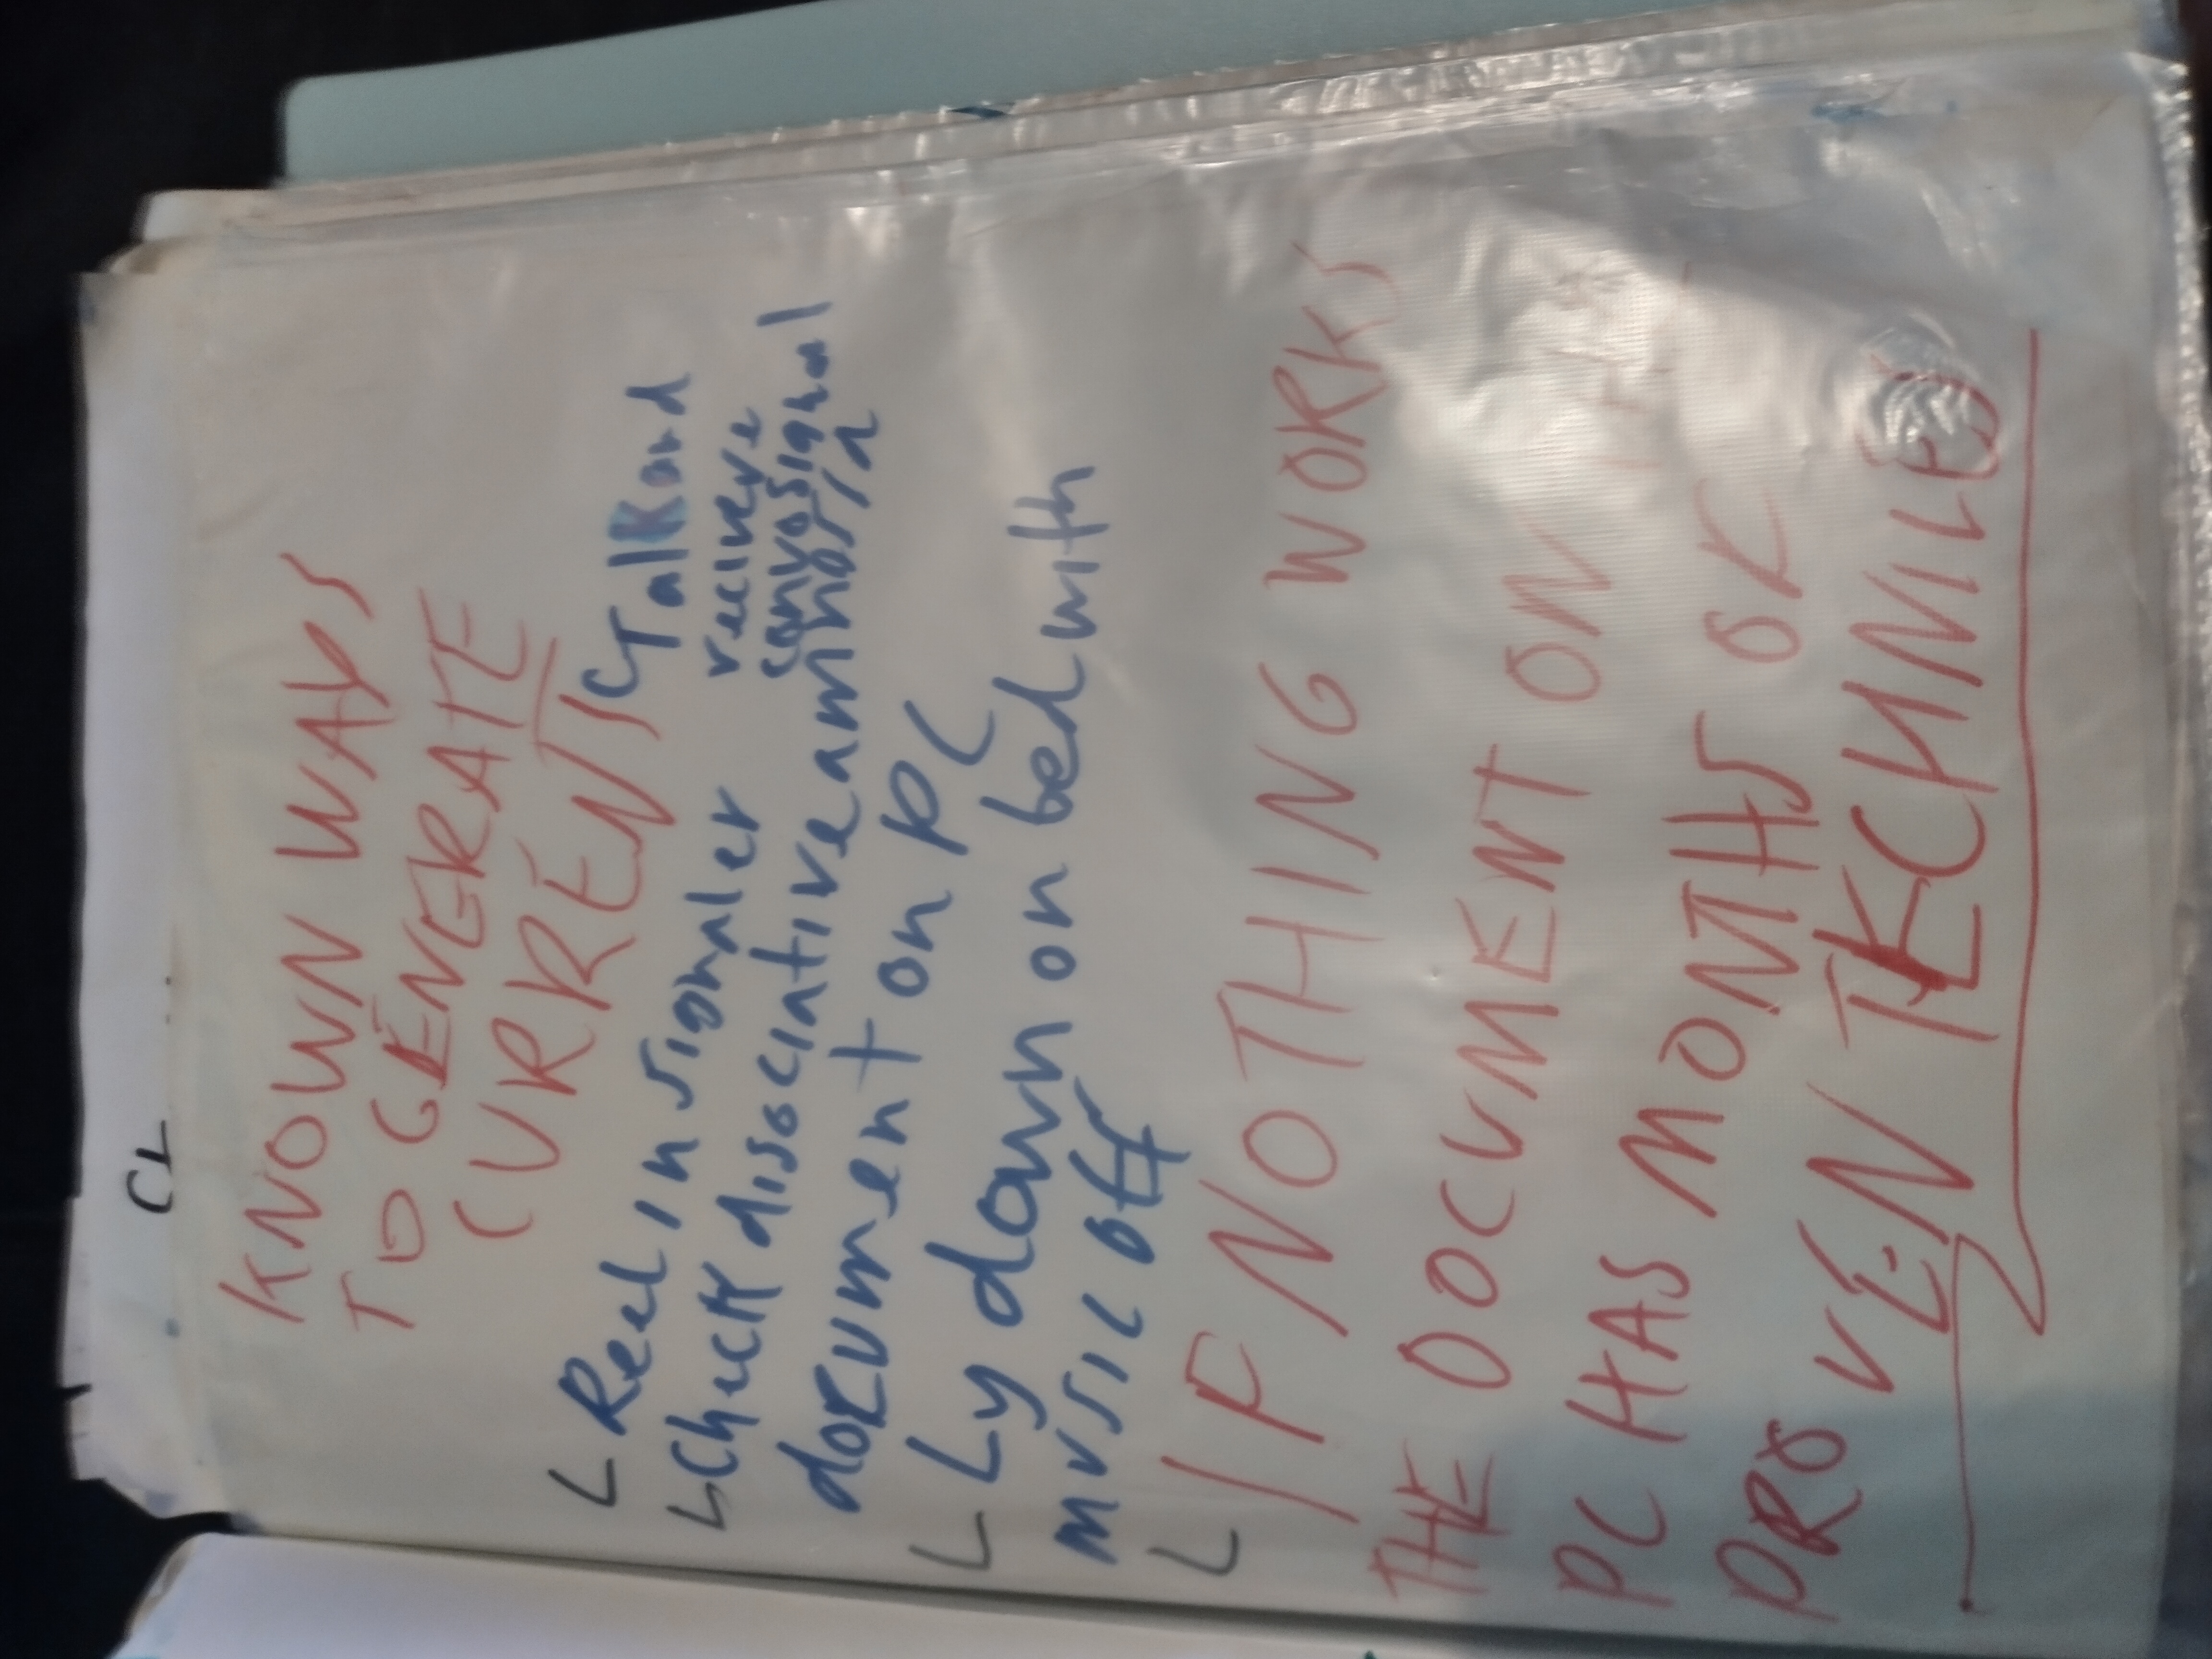 CL
KNOWN WAYS
TO GENERATE
CURRENT
Reel in signaler (Talk and
receieve
convo signal
Check dissociative amnesia
document on PC
Ly down on bed with
music off
IF NOTHING WORKS
THE DOCUMENT ON THE
PC HAS MONTHS OF
PROVEN TECHNILES